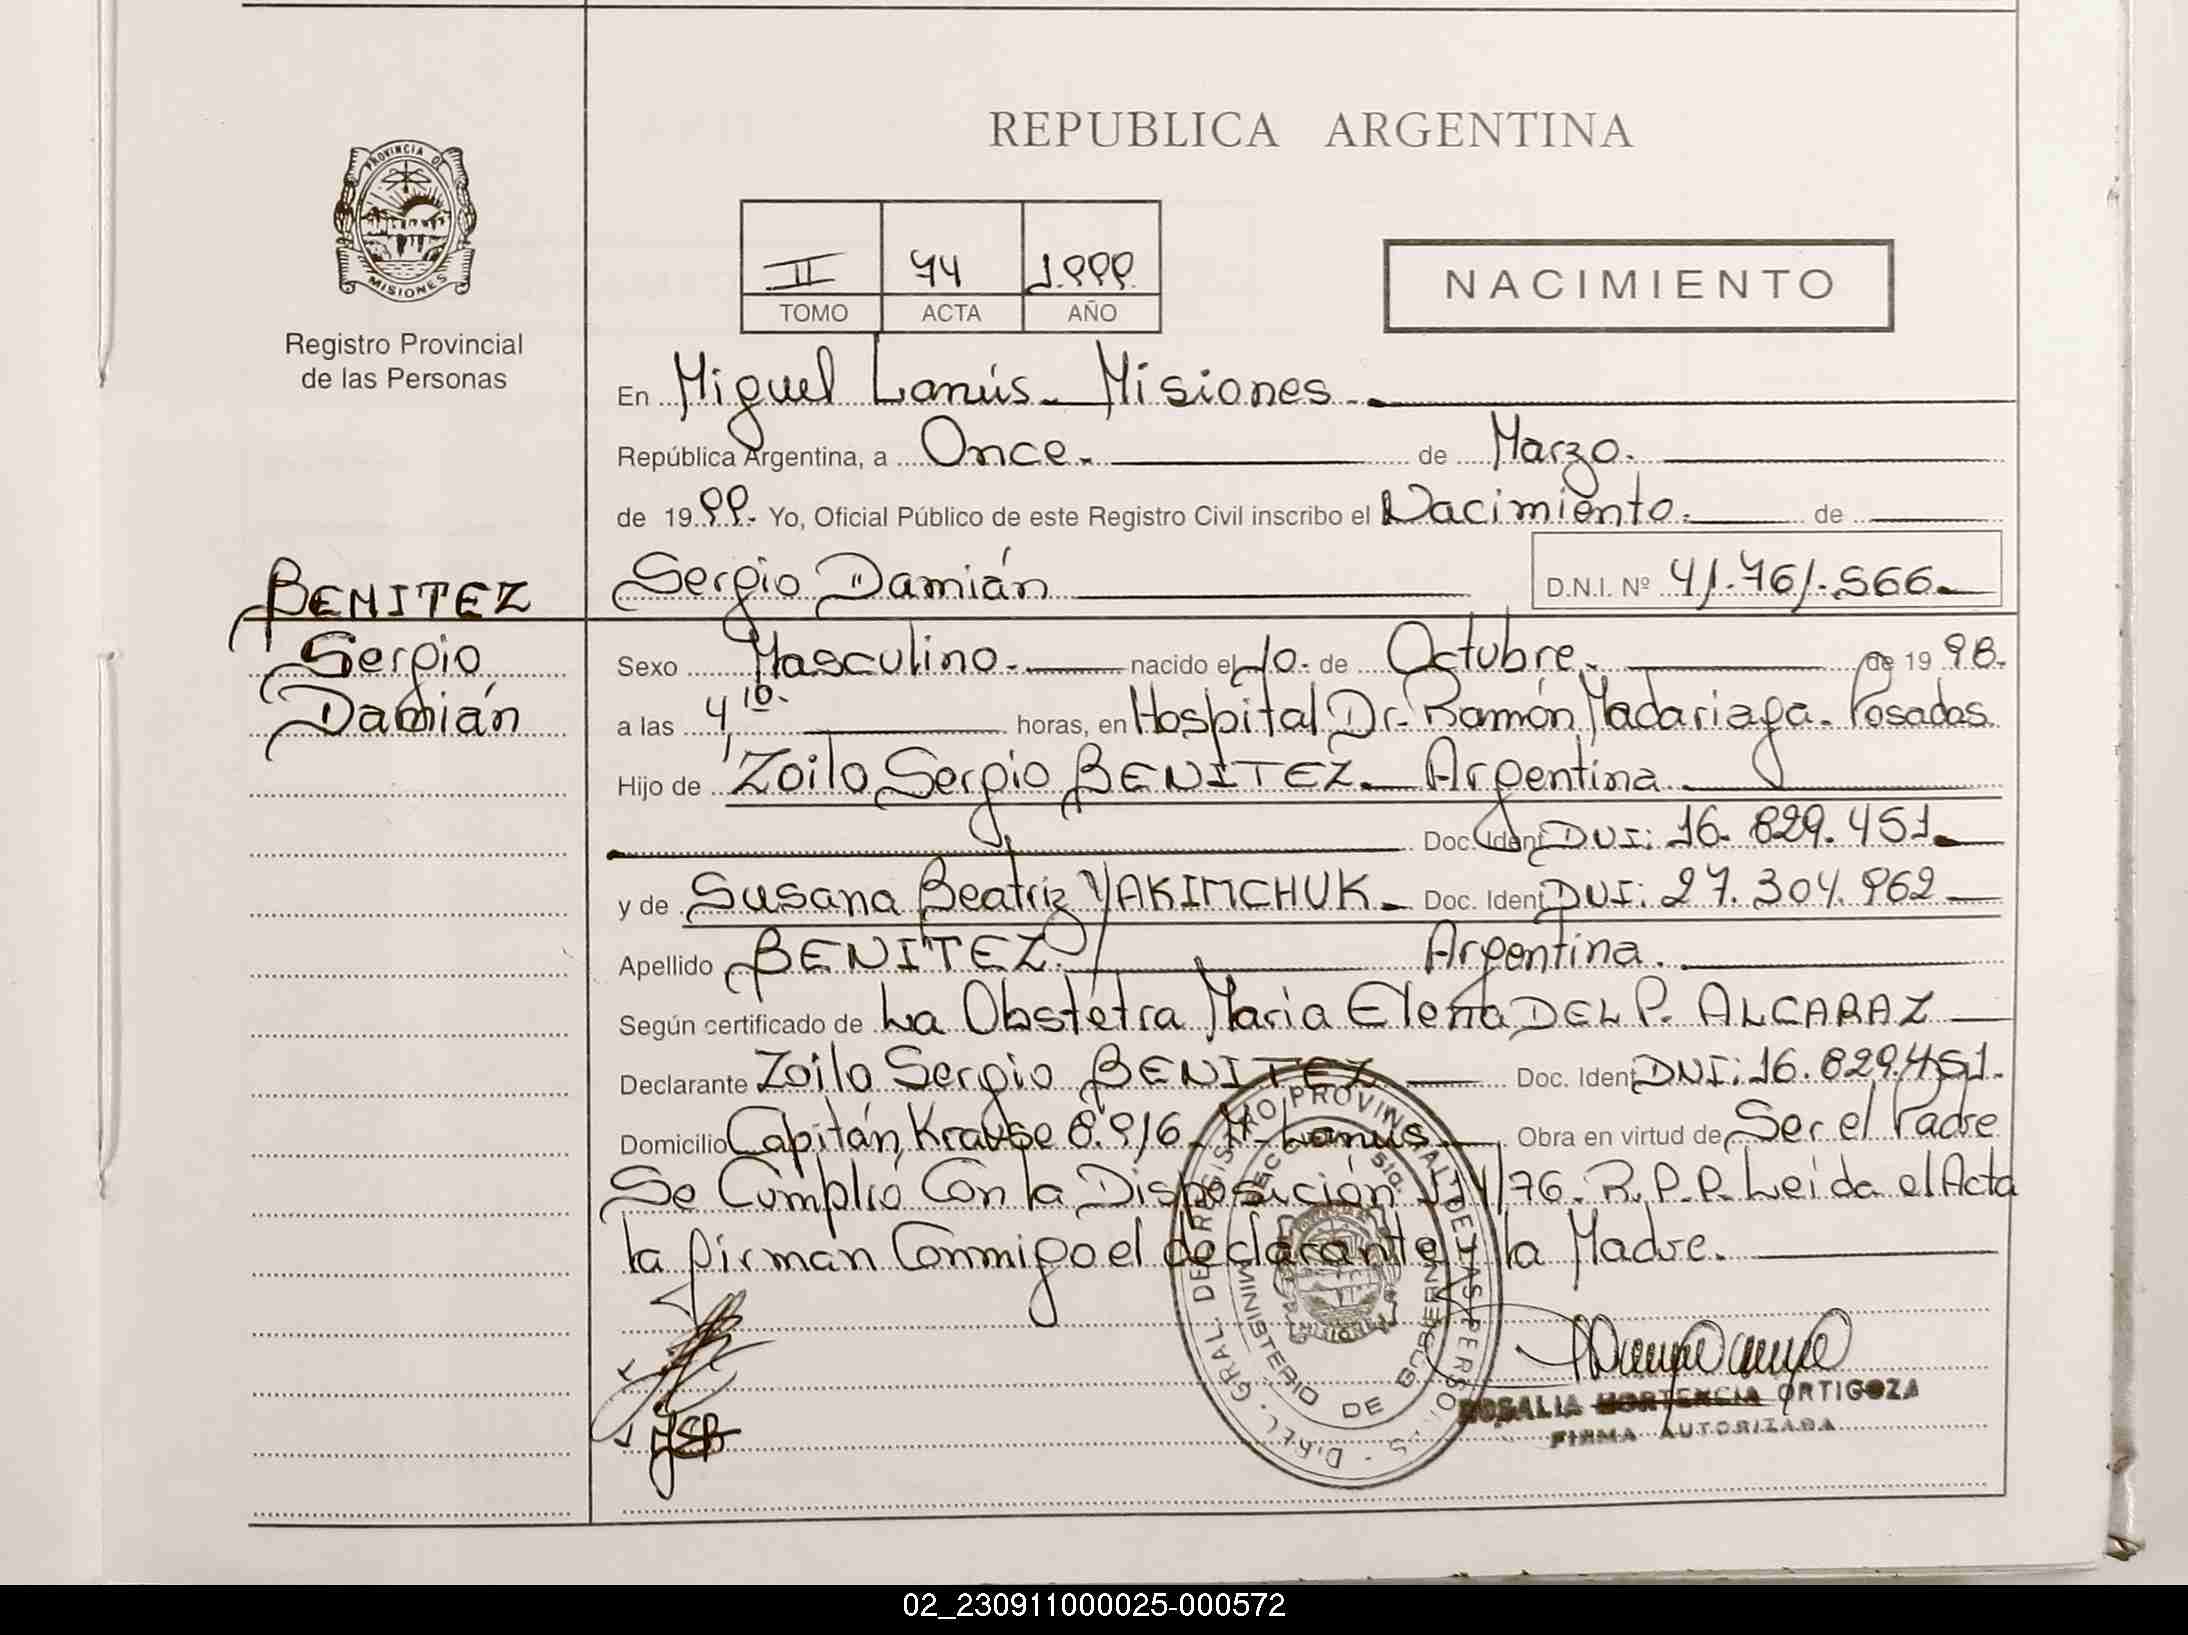 REPUBLICA ARGENTINA
PROVINCIA DE
MISIONES
Registro Provincial
de las Personas
II 74 1.999.
TOMO ACTA AÑO
NACIMIENTO
En Miguel Lanús - Misiones.
República Argentina, a Once. de Marzo.
de 1999. Yo, Oficial Público de este Registro Civil inscribo el Nacimiento. de
Sergio Damián D.N.I. Nº 41.761.566.
BENITEZ
Sergio
Damián
Sexo Masculino. nacido el 10. de Octubre. de 1998.
a las 4,10. horas, en Hospital Dr. Ramón Madariaga. Posadas.
Hijo de Zoilo Sergio BENITEZ. Argentina
Doc. Ident. DNI: 16.829.451.
y de Susana Beatriz YAKIMCHUK. Doc. Ident. DNI: 27.304.962
Apellido BENITEZ. Argentina.
Según certificado de La Obstétra Maria Elena DEL P. ALCARAZ
Declarante Zoilo Sergio BENITEZ Doc. Ident. DNI: 16.829.451.
Domicilio Capitán Krause 8.916 - M. Lanús Obra en virtud de Ser el Padre
Se Cumplió Con la Disposición /76. R.P.P. Leida el Acta
la firman Conmigo el declarante y la Madre.
DIREC. GRAL. DE REGISTRO PROVINCIAL DE LAS PERSONAS
MINISTERIO DE GOBIERNO
ROSALIA HORTENCIA ORTIGOZA
FIRMA AUTORIZADA
02_230911000025-000572